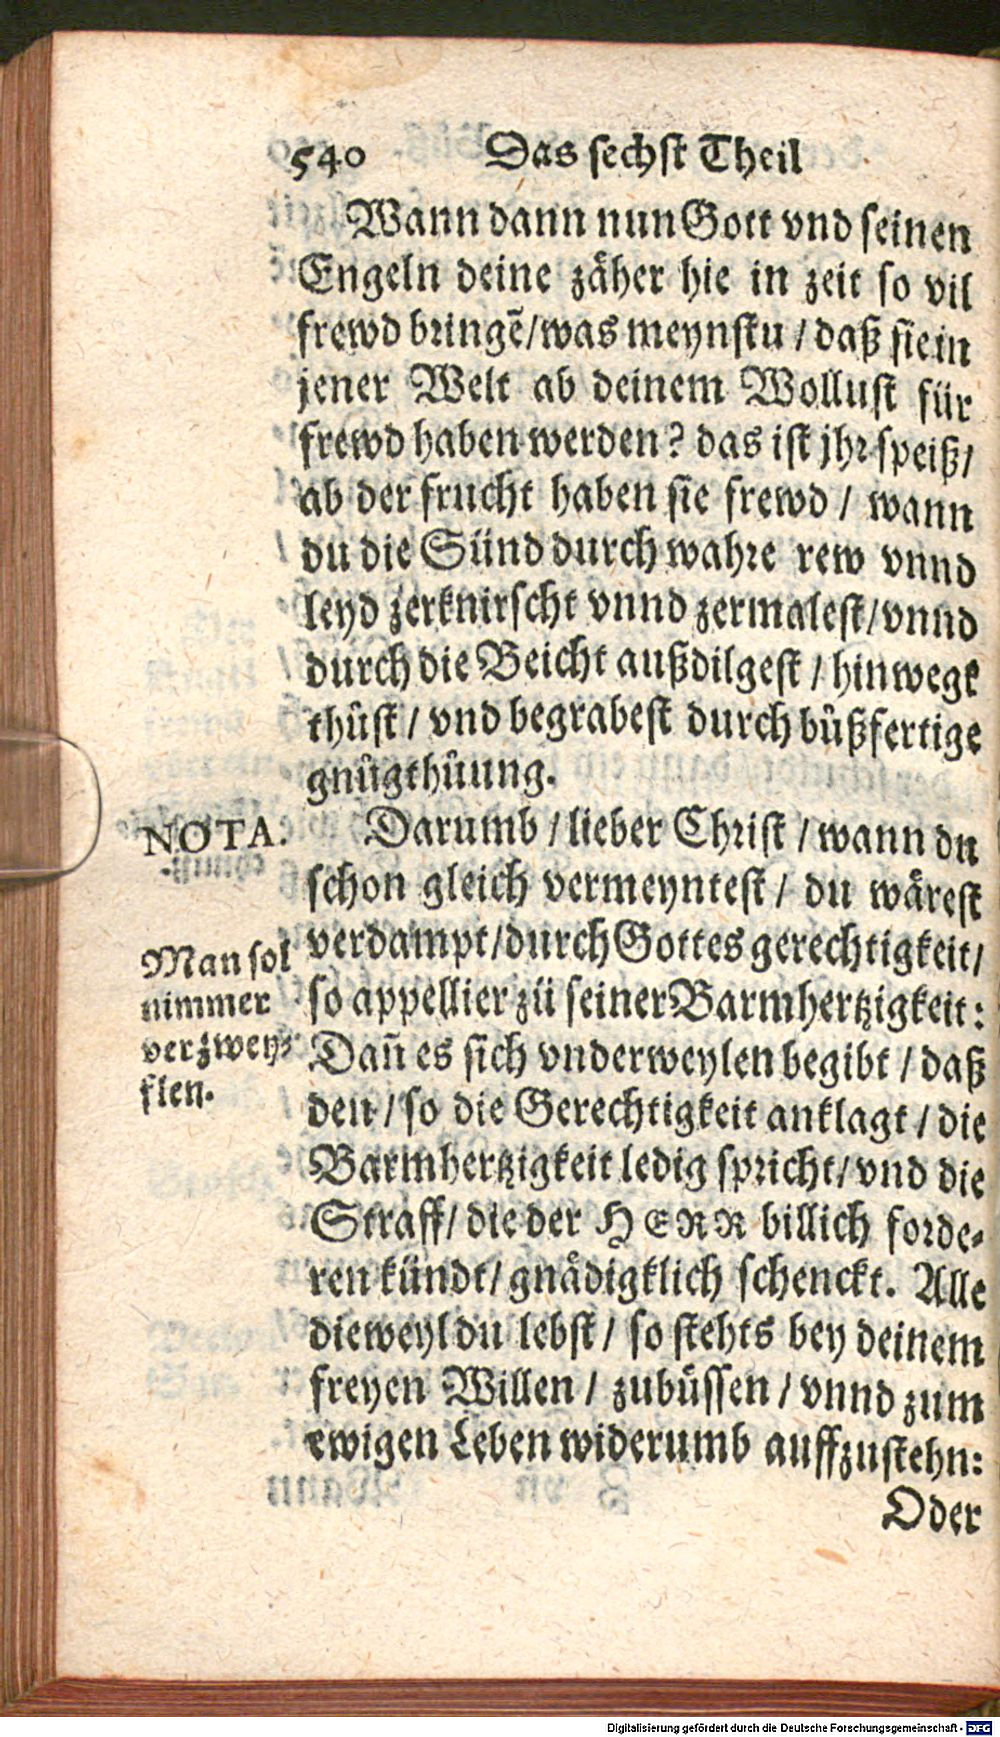 540 Das sechst Theil
Wann dann nun Gott vnd seinen
Engeln deine zäher hie in zeit so vil
frewd bringẽ/was meynstu / daß sie in
jener Welt ab deinem Wollust für
frewd haben werden? das ist jhr speiß/
ab der frucht haben sie frewd / wann
du die Sünd durch wahre rew vnnd
leyd zerknirscht vnnd zermalest/vnnd
durch die Beicht außdilgest / hinwegk
thüst / vnd begrabest durch büßfertige
gnügthüung.
NOTA.
Darumb / lieber Christ / wann du
schon gleich vermeyntest / du wärest
verdampt/durch Gottes gerechtigkeit/
so appellier zü seiner Barmhertzigkeit:
Dañ es sich vnderweylen begibt / daß
den / so die Gerechtigkeit anklagt / die
Barmhertzigkeit ledig spricht/ vnd die
Straff/ die der HERR billich forde-
ren kündt/ gnädigklich schenckt. Alle
dieweyl du lebst / so stehts bey deinem
freyen Willen / zubüssen / vnnd zum
ewigen Leben widerumb auffzustehn:
Oder
Man sol
nimmer
verzwey-
flen.
Digitalisierung gefördert durch die Deutsche Forschungsgemeinschaft - DFG